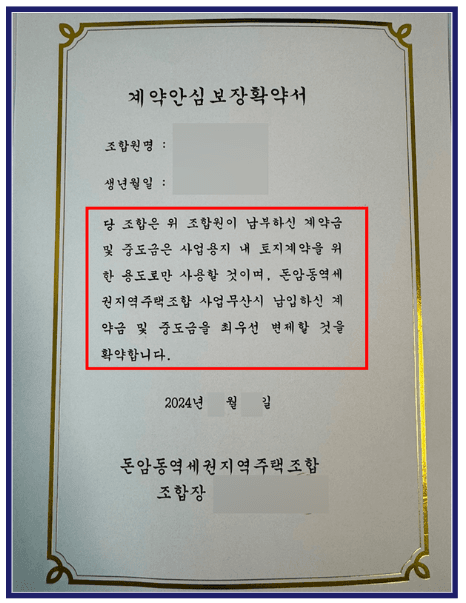 계약안심보장확약서
조합원명 :
생년월일 :
당 조합은 위 조합원이 납부하신 계약금
및 중도금은 사업용지 내 토지계약을 위
한 용도로만 사용할 것이며, 돈암동역세
권지역주택조합 사업무산시 납입하신 계
약금 및 중도금을 최우선 변제할 것을
확약합니다.
2024년 월 길
돈암동역세권지역주택조합
조합장